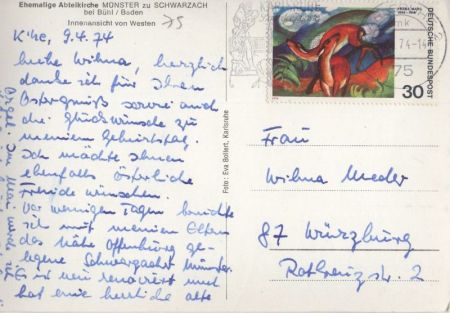 Ehemalige Abteikirche MÜNSTER zu SCHWARZACH
bei Bühl / Baden
Innenansicht von Westen
K'he, 9.4.74
Liebe Wilma, herzlich
danke ich für Ihren
Ostergruß sowie auch
die Glückwünsche zu
meinem Geburtstag.
Ich möchte Ihnen
ebenfalls österliche
Freude wünschen.
Vor wenigen Tagen besuchte
ich mit meinen Eltern
das nahe Offenburg ge-
legene Schwarzacher Münster.
Es ist neu renoviert und
hat eine herrliche alte
Orgel. Im
Foto: Eva Bollert, Karlsruhe
FRANZ MARC
DEUTSCHE BUNDESPOST
30
74-14
75
Frau
Wilma Meder
87 Würzburg
Rotkreuzstr. 2